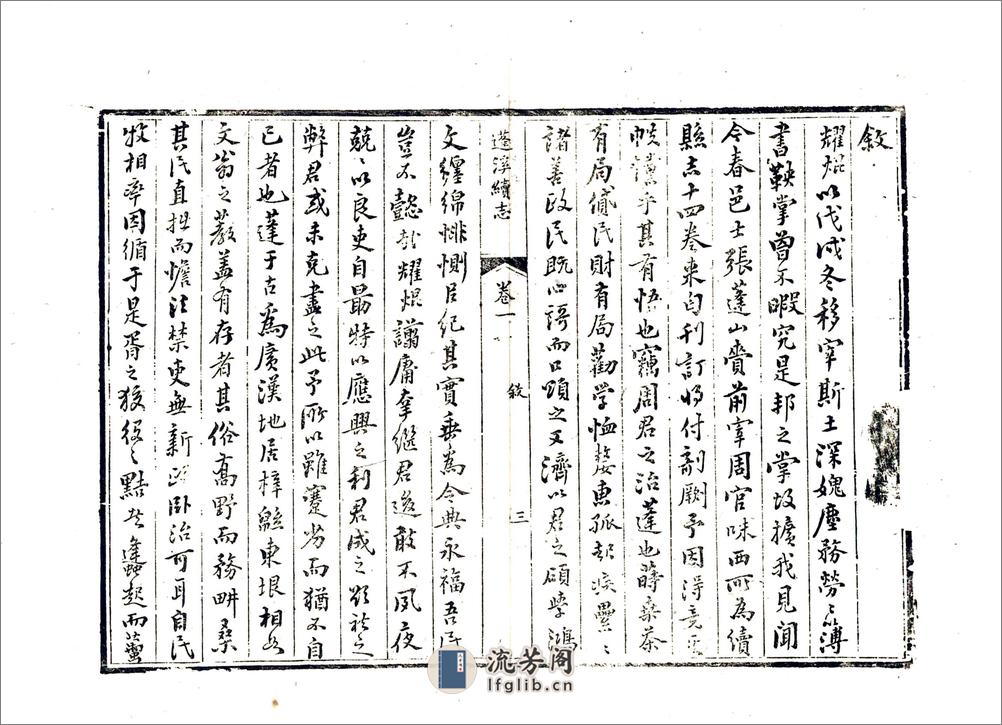 敘
耀焜以戊戌冬移宰斯土深媿塵務勞々簿
書鞅掌曾不暇究是邦之掌故擴我見聞
今春邑士張蓬山賫前宰周官味西所為續
縣志十四卷來自刊訂將付剞劂予因得竟
帙讀乎其有悟也竊周君之治蓬也蒔桑茶
有局貸民財有局勸學恤嫠惠孤
諸善政民既心語而口頌之又濟以君之碩學鴻
蓬溪續志
卷一
敘
三
文纏綿悱惻臣紀其實垂為令典永福吾民
豈不懿哉耀焜譾庸幸繼君後敢不夙夜
兢々以良吏自勗特以應興之利君成之
弊君或未克盡之此予所以雖蹇劣而猶不自
已者也蓬于古為廣漢地居梓緜東垠相如
文翁之教蓋有存者其俗高野而務畊桑
其民直拙而憺法禁吏無新政臥治可耳自民
牧相率因循于是胥之狡役之黠者蠭起而蠆
流芳阁
lfglib.cn